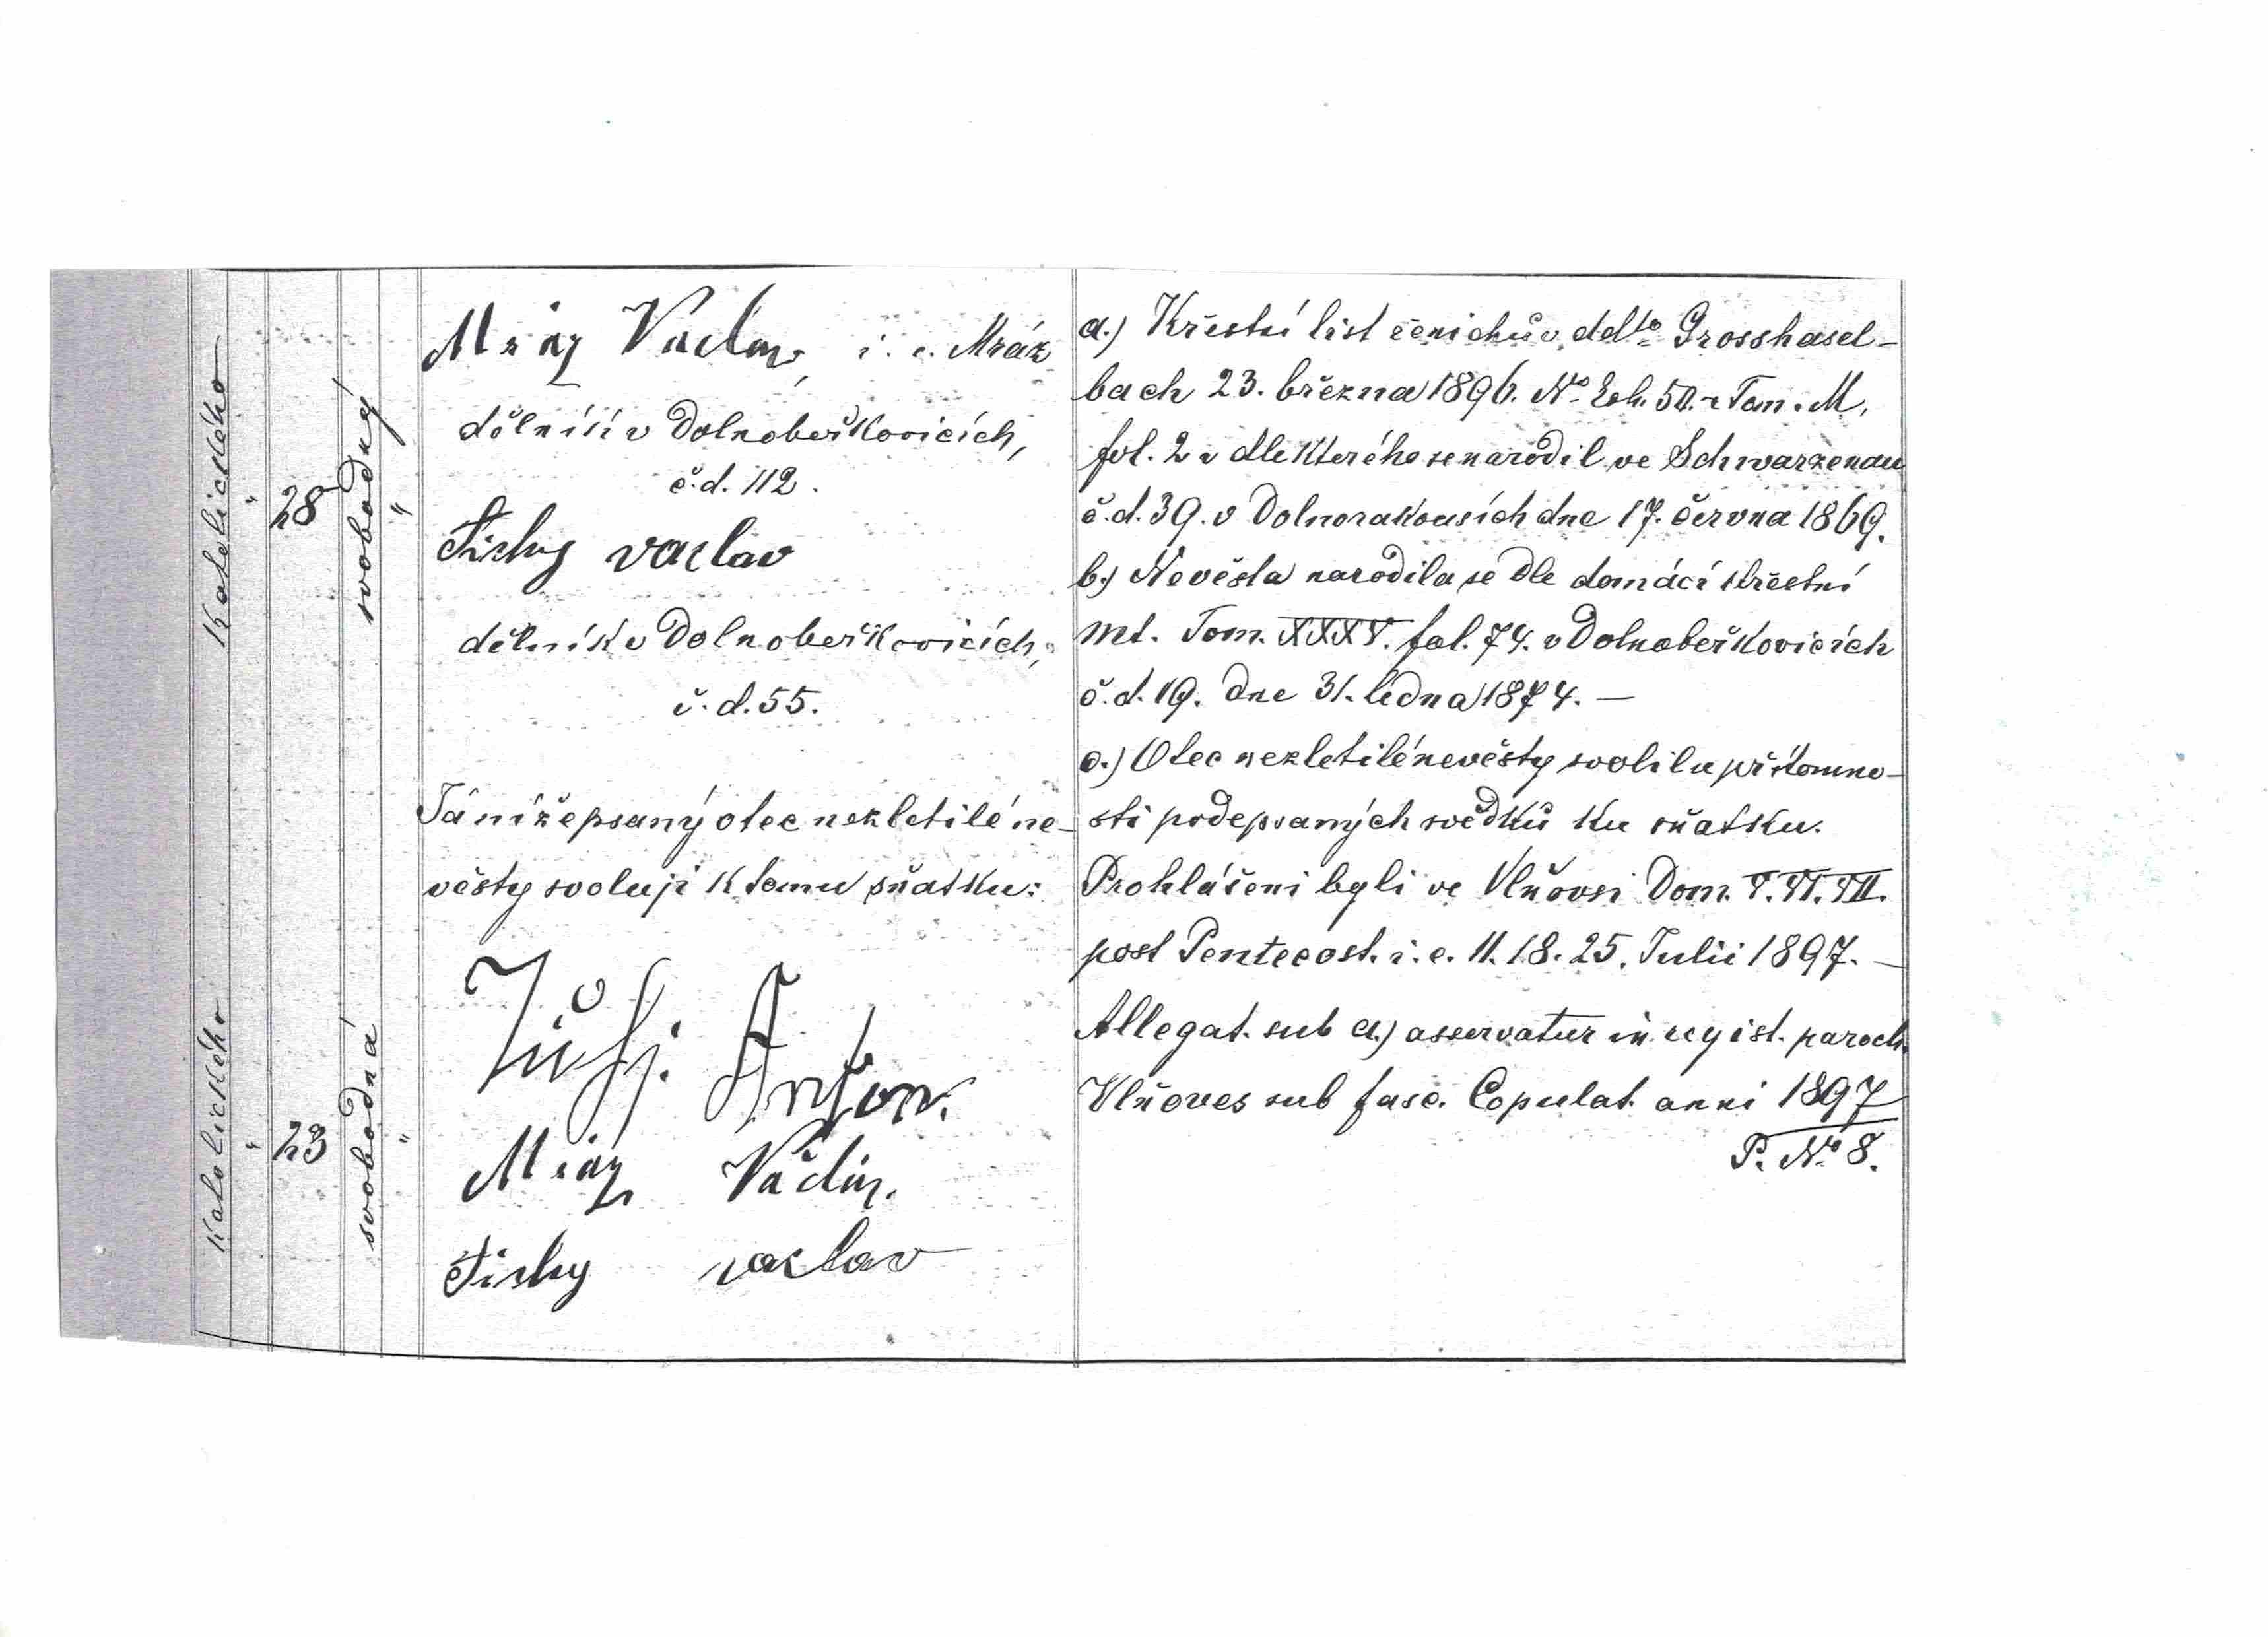 Katolického
"
28
svobodný
"
Katolického
"
23
svobodná
"
Mráz Václav, i. e. Mráz
dělník v Dolnobeřkovicích,
č. d. 112.
Tichy vaclav
dělník v Dolnobeřkovicích,
č. d. 55.
Já níže psaný otec nezletilé ne-
věsty svoluji k tomu sňatku:
Anton.
Mráz Václav.
Tichy vaclav
a.) Křestní list ženichův ddto Grosshasel-
bach 23. března 1896. No Exh. 50. Tom. M,
fol. 2 dle kterého se narodil ve Schwarzenau
č. d. 39. v Dolnorakousích dne 17. června 1869.
b.) Nevěsta narodila se dle domácí křestní
mt. Tom. XXXV. fol. 74. v Dolnobeřkovicích
č. d. 19. dne 31. ledna 1874. —
c.) Otec nezletilé nevěsty svolil u přítomno-
sti podepsaných svědků ku sňatku.
Prohlášeni byli ve Vlňovsi Dom. V. VI. VII.
post Pentecost. i. e. 11. 18. 25. Julii 1897. —
Allegat. sub a.) asservatur in regist. paroch.
Vlňoves sub fasc. Copulat. anni 1897
P. No 8.